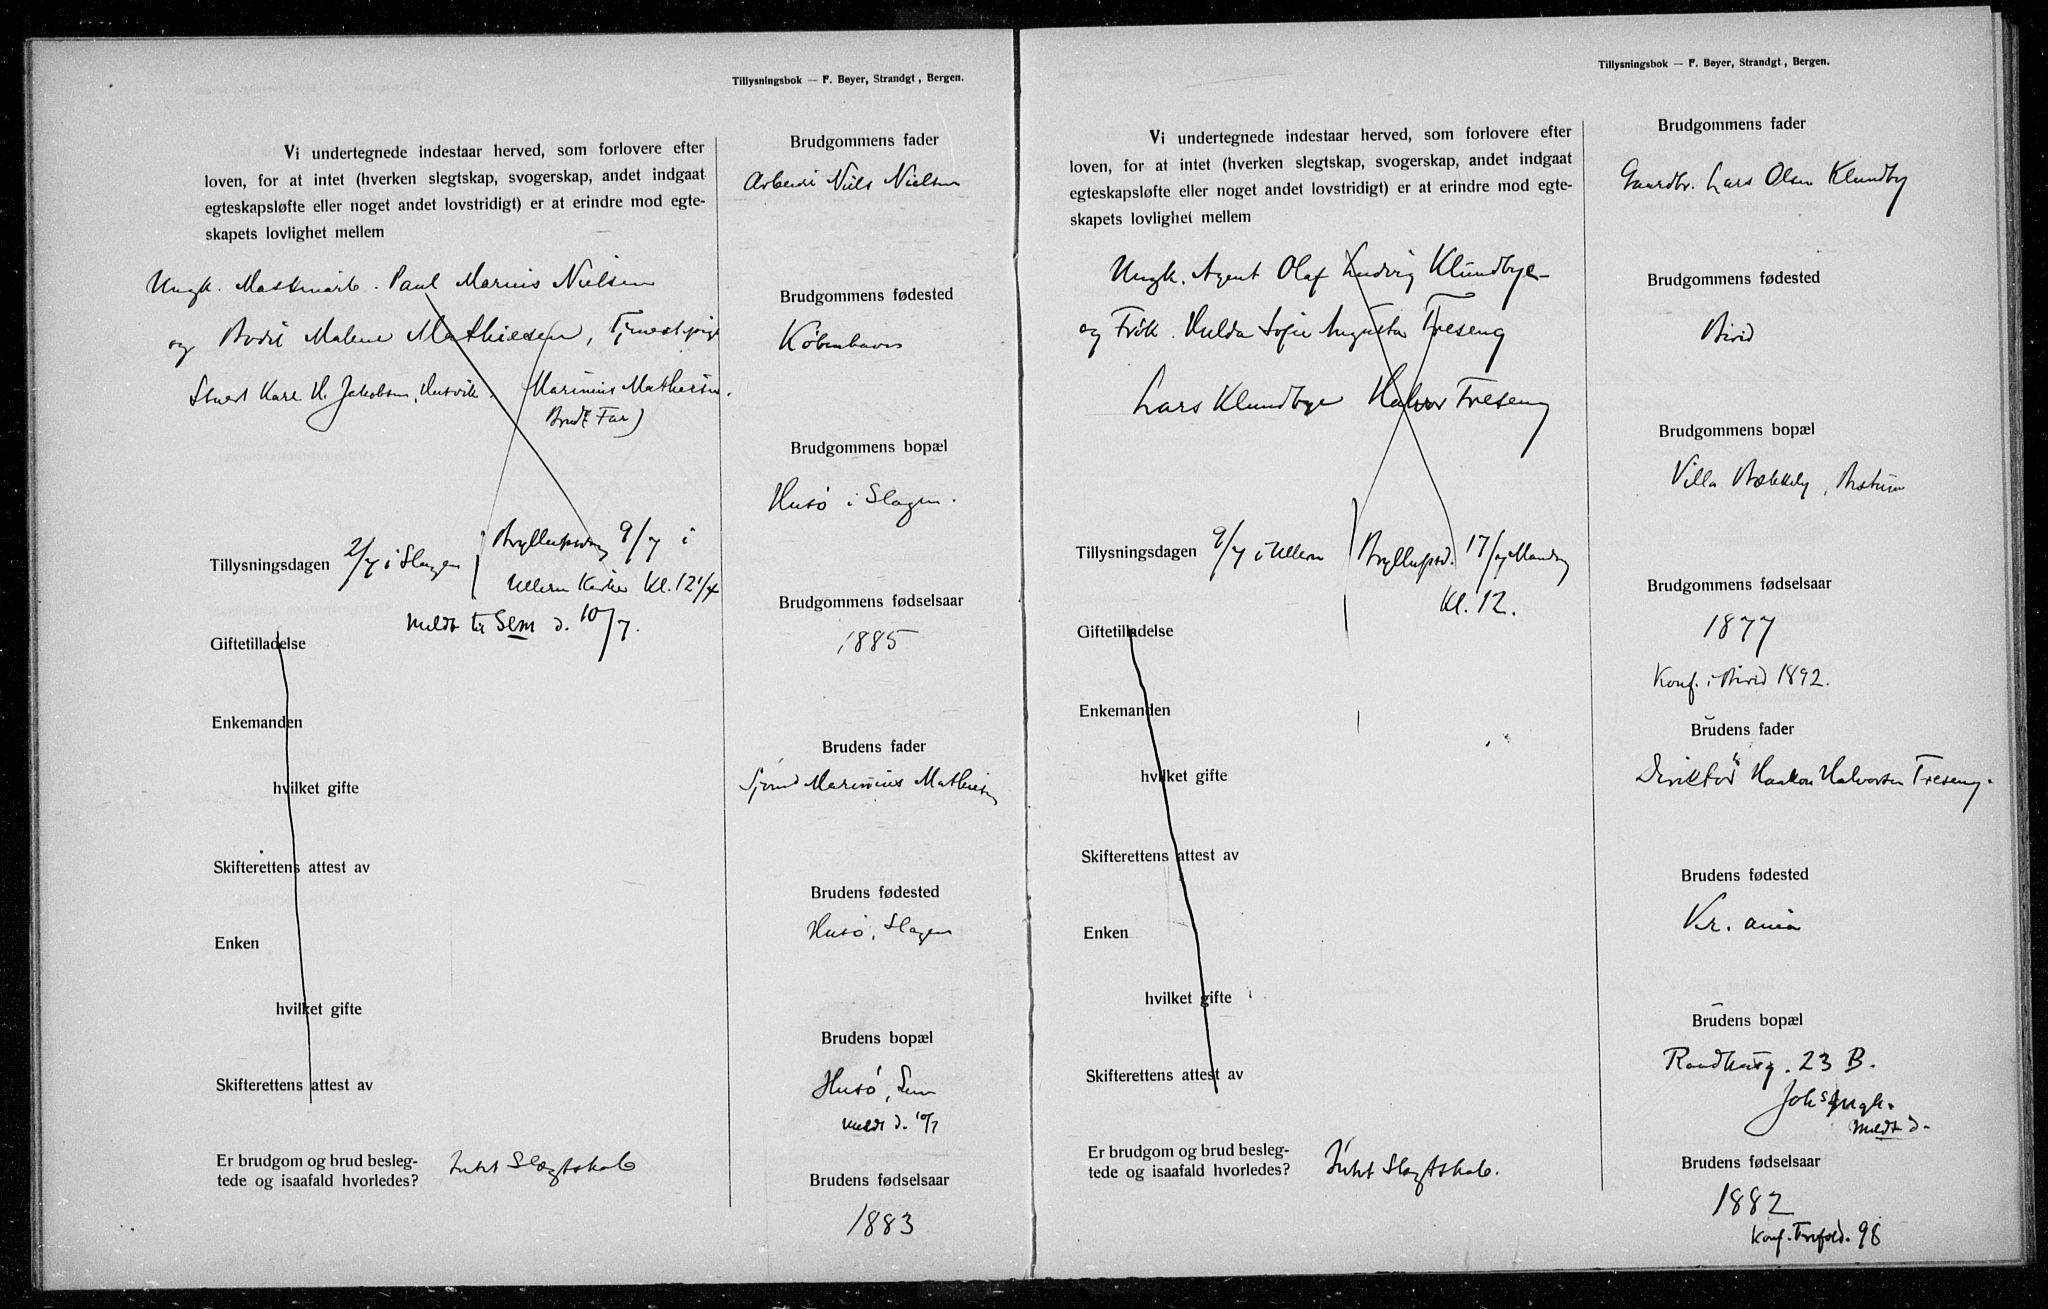 Tillysningsbok — F. Beyer, Strandgt, Bergen.
Vi undertegnede indestaar herved, som forlovere efter
loven, for at intet (hverken slegtskap, svogerskap, andet indgaat
egteskapsløfte eller noget andet lovstridigt) er at erindre mod egte-
skapets lovlighet mellem
Ungk. Paul Marius Nielsen
og Bodil Malene Mathiesen,
Karl H. Jakobsen, Husvik. Marinius Mathiesen.
Brud. Far)
Tillysningsdagen 2/7 i Slagen Bryllupsdag 9/7 i
Ullern Kirke Kl. 12 1/4
meldt til Sem d. 10/7.
Giftetilladelse
Enkemanden
hvilket gifte
Skifterettens attest av
Enken
hvilket gifte
Skifterettens attest av
Er brudgom og brud besleg-
tede og isaafald hvorledes? Intet Slægtskab
Brudgommens fader
Arbeid. Niels Nielsen
Brudgommens fødested
København
Brudgommens bopæl
Husø i Slagen.
Brudgommens fødselsaar
1885
Brudens fader
Sjømd Marinius Mathiesen
Brudens fødested
Husø, Slagen
Brudens bopæl
Husø, Sem
meldt d. 10/7
Brudens fødselsaar
1883
Tillysningsbok — F. Beyer, Strandgt, Bergen.
Vi undertegnede indestaar herved, som forlovere efter
loven, for at intet (hverken slegtskap, svogerskap, andet indgaat
egteskapsløfte eller noget andet lovstridigt) er at erindre mod egte-
skapets lovlighet mellem
Ungk. Agent Olaf Ludvig Klundbye
og Frøk. Hulda Sofie Augusta Treseng
Lars Klundbye Halvor Treseng
Tillysningsdagen 9/7 i Ullern Bryllupsd. 17/7 Mandag
Kl. 12.
Giftetilladelse
Enkemanden
hvilket gifte
Skifterettens attest av
Enken
hvilket gifte
Skifterettens attest av
Er brudgom og brud besleg-
tede og isaafald hvorledes? Intet Slægtskab.
Brudgommens fader
Gaardbr. Lars Olsen Klundby
Brudgommens fødested
Birid
Brudgommens bopæl
Villa Bækkely, Bestum
Brudgommens fødselsaar
1877
Konf. i Birid 1892.
Brudens fader
Direktør Haakon Halvorsen Treseng.
Brudens fødested
Kr.ania
Brudens bopæl
Raadhusg. 23 B.
meldt d.
Brudens fødselsaar
1882
Konf. Trefold. 98